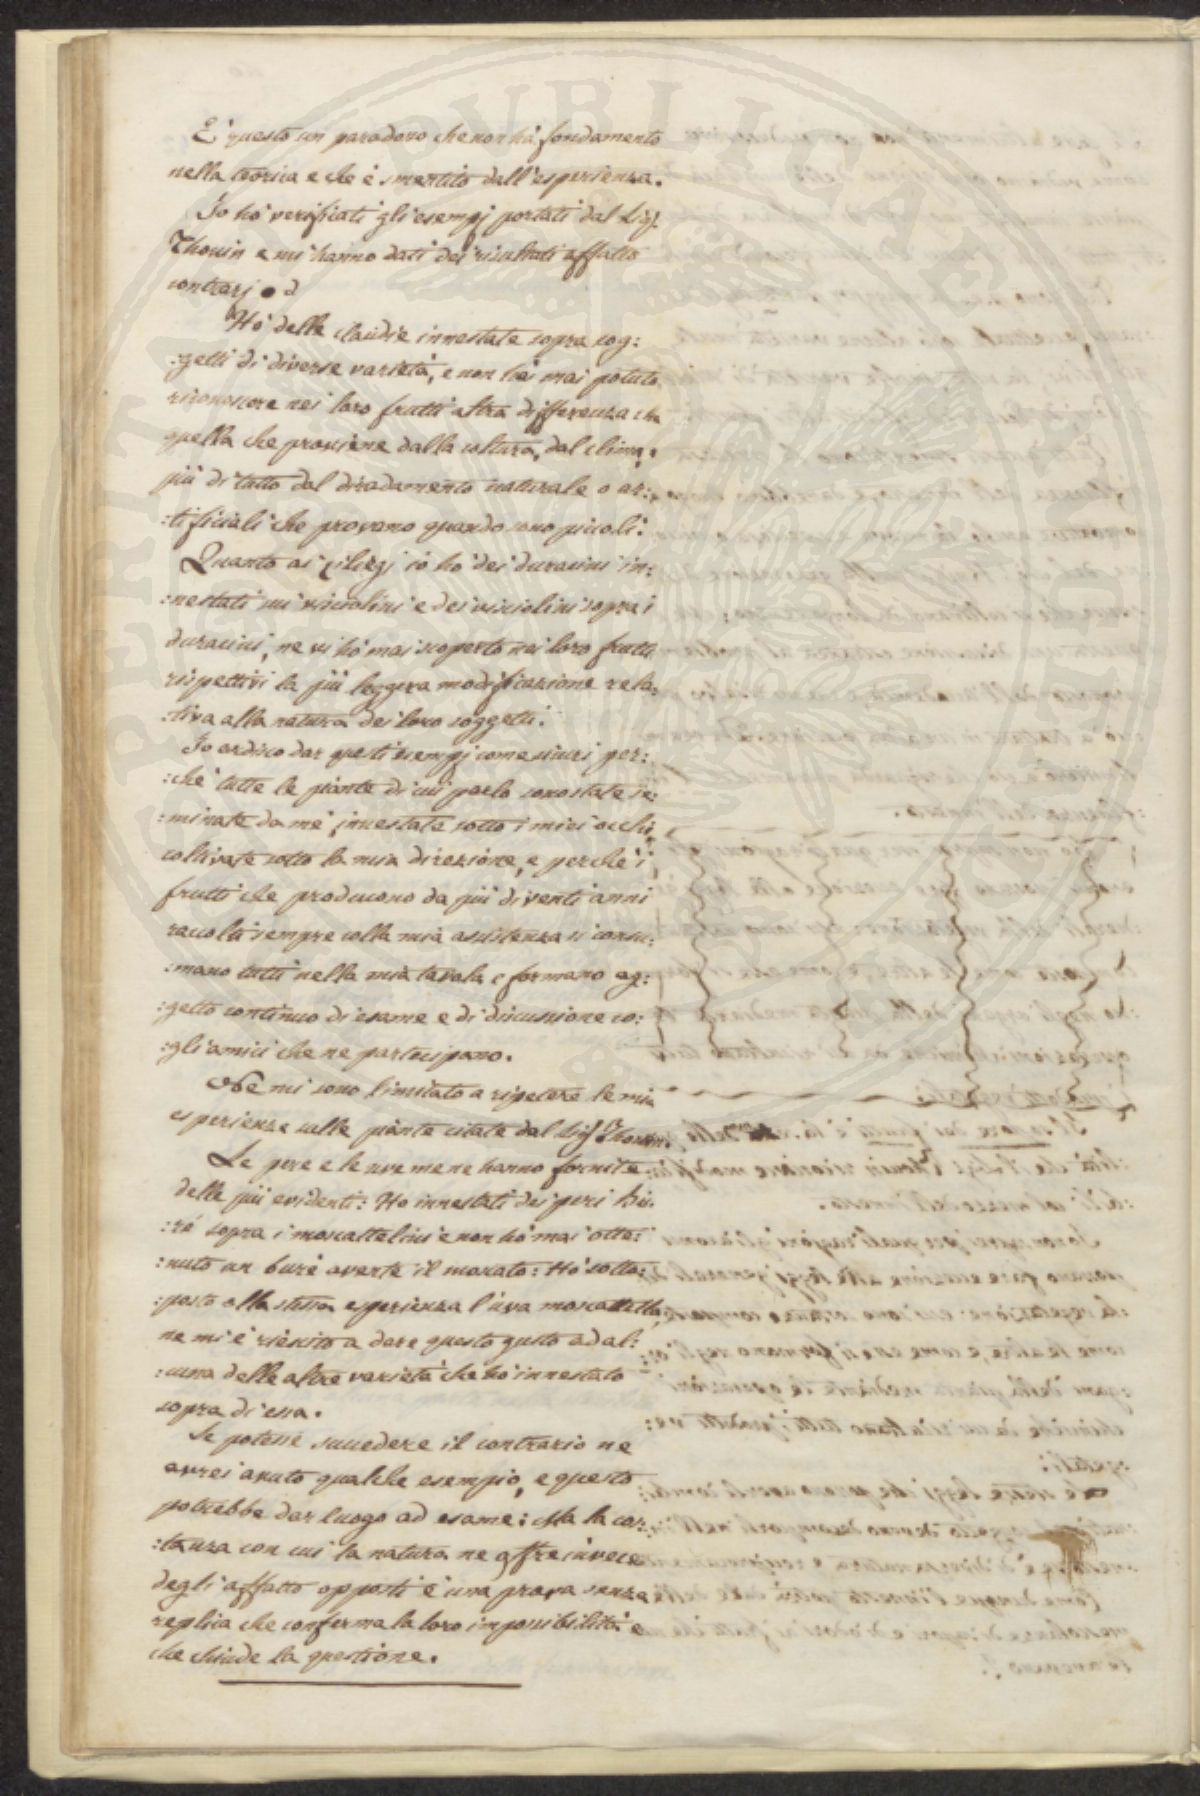 E' questo un paradoxo che non há fondamento
nella teorica e che é smentito dall'esperienza.
Io hó verificati gli esempj portati dal Sig.
Thouin e mi hanno dati dei risultati affatto
contrarj
Hó delle claudie innestate sopra sog:
:getti di diverse varietà, e non hó mai potuto
riconoscere nei loro frutti altra differenza che
quella che proviene dalla coltura, dal clima, e
piú di tutto dal diradamento naturale o ar:
:tificiali che provano quando sono piccoli.
Quanto ai ciliegj io hó dei duracini in:
:nestati sui visciolini e dei visciolini sopra i
duracini, ne vi hó mai scoperto nei loro frutti
rispettivi la piú leggera modificazione rela:
:tiva alla natura dei loro soggetti.
Io ardisco dar questi esempj come sicuri per:
:ché tutte le piante di cui parlo sono state se:
:minate da me, innestate sotto i miei occhi,
coltivate sotto la mia direzione, e perché i
frutti che producono da piú di venti anni
raccolti sempre colla mia assistenza si consu:
:mano tutti nella mia tavola e formano og:
:getto continuo di esame e di discussione co:
:gli amici che ne partecipano.
Ne mi sono limitato a ripetere le mie
esperienze sulle piante citate dal Sig. Thouin.
Le pere e le uve me ne hanno fornite
delle piú evidenti: Ho innestati dei peri bu:
:ré sopra i moscattellini e non hó mai otte:
:nuto un buré avente il moscato: Hó sotto:
:posto alla stessa esperienza l'uva moscattella,
ne mi é riescito a dare questo gusto ad al:
:cuna delle altre varietá che hó innestato
sopra di essa.
Se potesse succedere il contrario ne
avrei avuto qualche esempio, e questo
potrebbe dar luogo ad esame: Ma la cos:
:tanza con cui la natura ne offre invece
degli affatto opposti é una prova senza
replica che conferma la loro impossibilitá e
che chiude la questione.